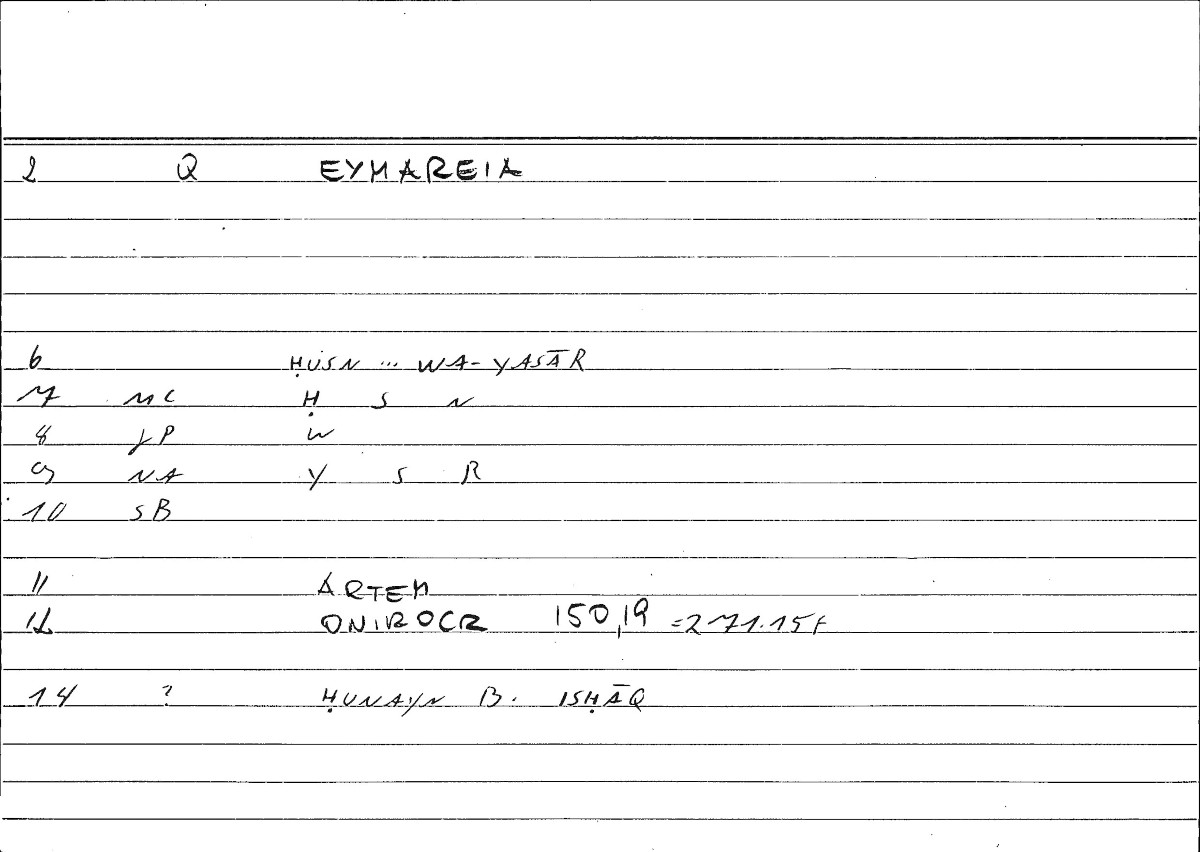 2 Q EYMAREIA
6 ḤUSN ... WA-YASĀR
7 MC Ḥ S N
8 JP W
9 NA Y S R
10 SB
11 ARTEM
12 ONIROCR 150,19 =271.15f
14 ? ḤUNAYN B. ISḤĀQ